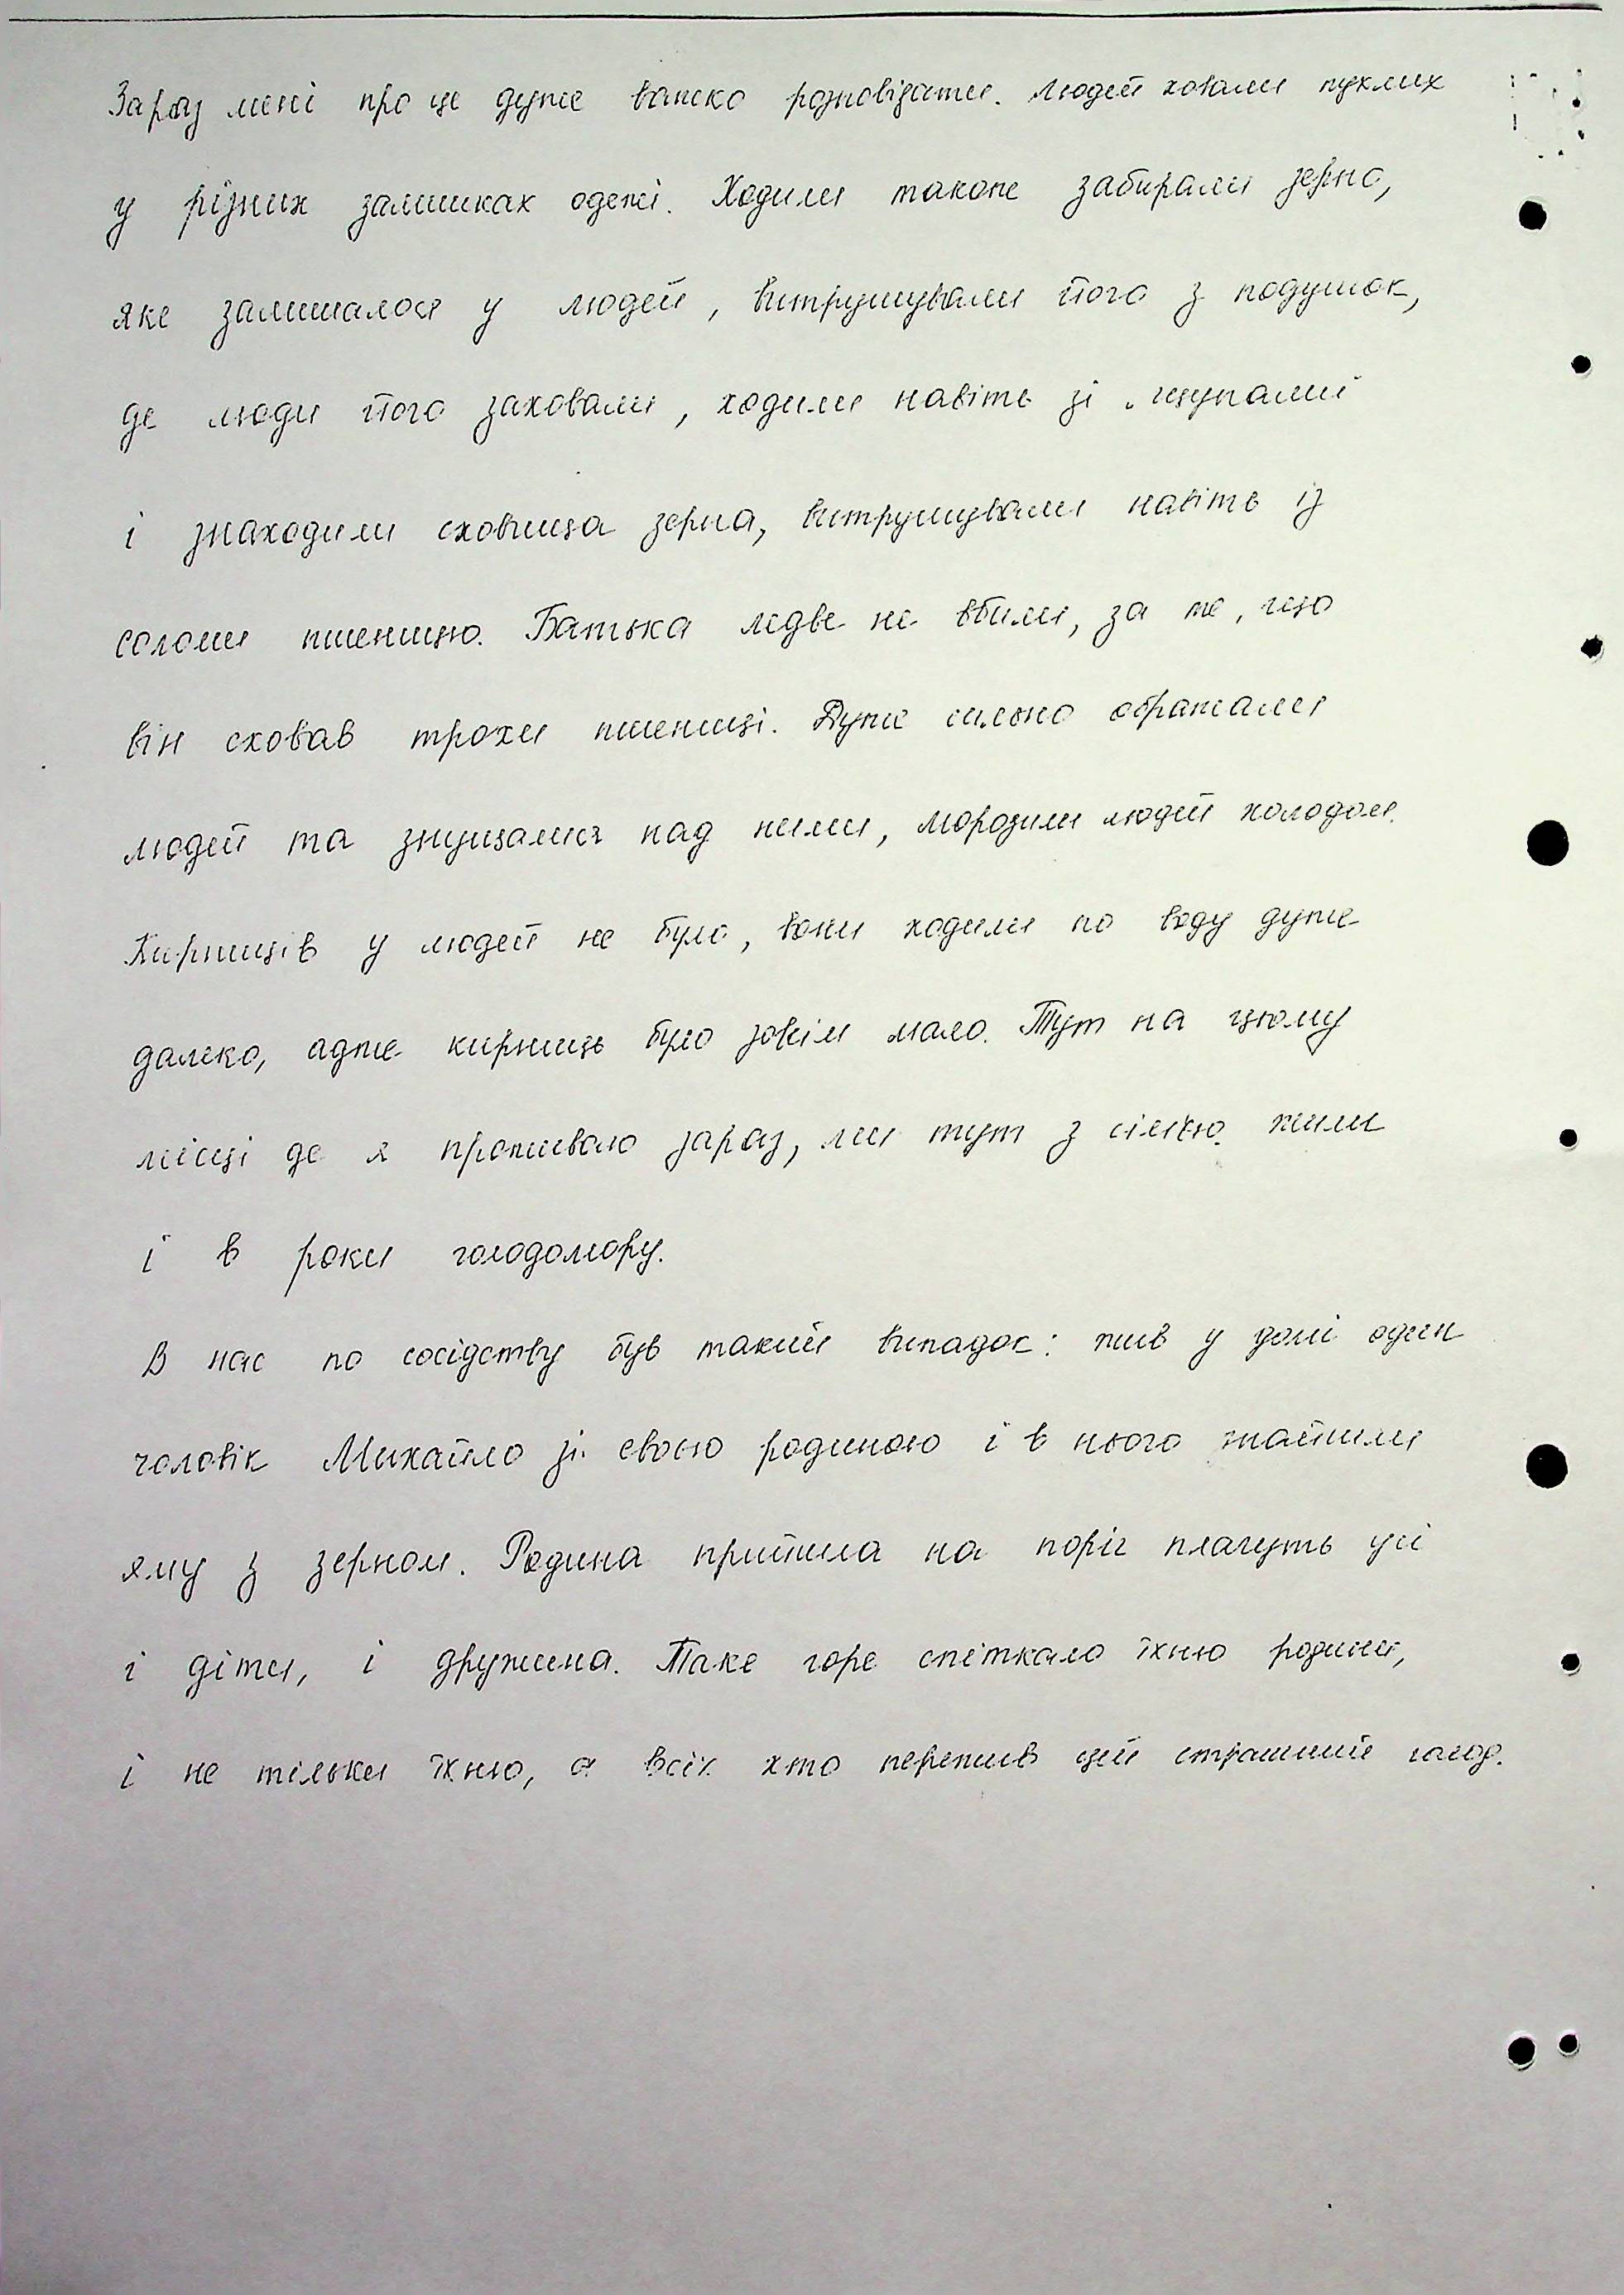 Зараз мені про це дуже важко розповідати. Людей ховали пухлих
у різних залишках одежі. Ходили також забирали зерно,
яке залишалося у людей, витрушували його з подушок,
де люди його заховали, ходили навіть зі щупами
і знаходили сховища зерна, витрушували навіть із
соломи пшеницю. Батька ледве не вбили, за те, що
він сховав трохи пшениці. Дуже сильно ображали
людей та знущалися над ними, морозили людей холодом.
Кирниців у людей не було, вони ходили по воду дуже
далеко, адже кирниць було зовсім мало. Тут на цьому
місці де я проживаю зараз, ми тут з сім'єю жили
і в роки голодомору.
В нас по сосідству був такий випадок: жив у домі один
чоловік Михайло зі своєю родиною і в нього знайшли
яму з зерном. Родина прийшла на поріг плачуть усі
і діти, і дружина. Таке горе спіткало їхню родини,
і не тільки їхню, а всіх хто пережив цей страшний голод.